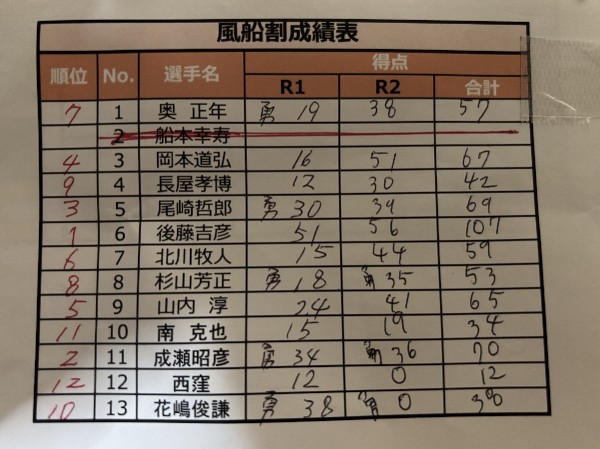 風船割成績表
順位 No. 選手名 得点
R1 R2 合計
7 1 奥 正年 勇 19 38 57
2 船本幸寿
4 3 岡本道弘 16 51 67
9 4 長屋孝博 12 30 42
3 5 尾崎哲郎 勇 30 39 69
1 6 後藤吉彦 51 56 107
6 7 北川牧人 15 44 59
8 8 杉山芳正 勇 18 35 53
5 9 山内 淳 24 41 65
11 10 南 克也 15 19 34
2 11 成瀬昭彦 勇 34 36 70
12 12 西窪 12 0 12
10 13 花嶋俊謙 勇 38 0